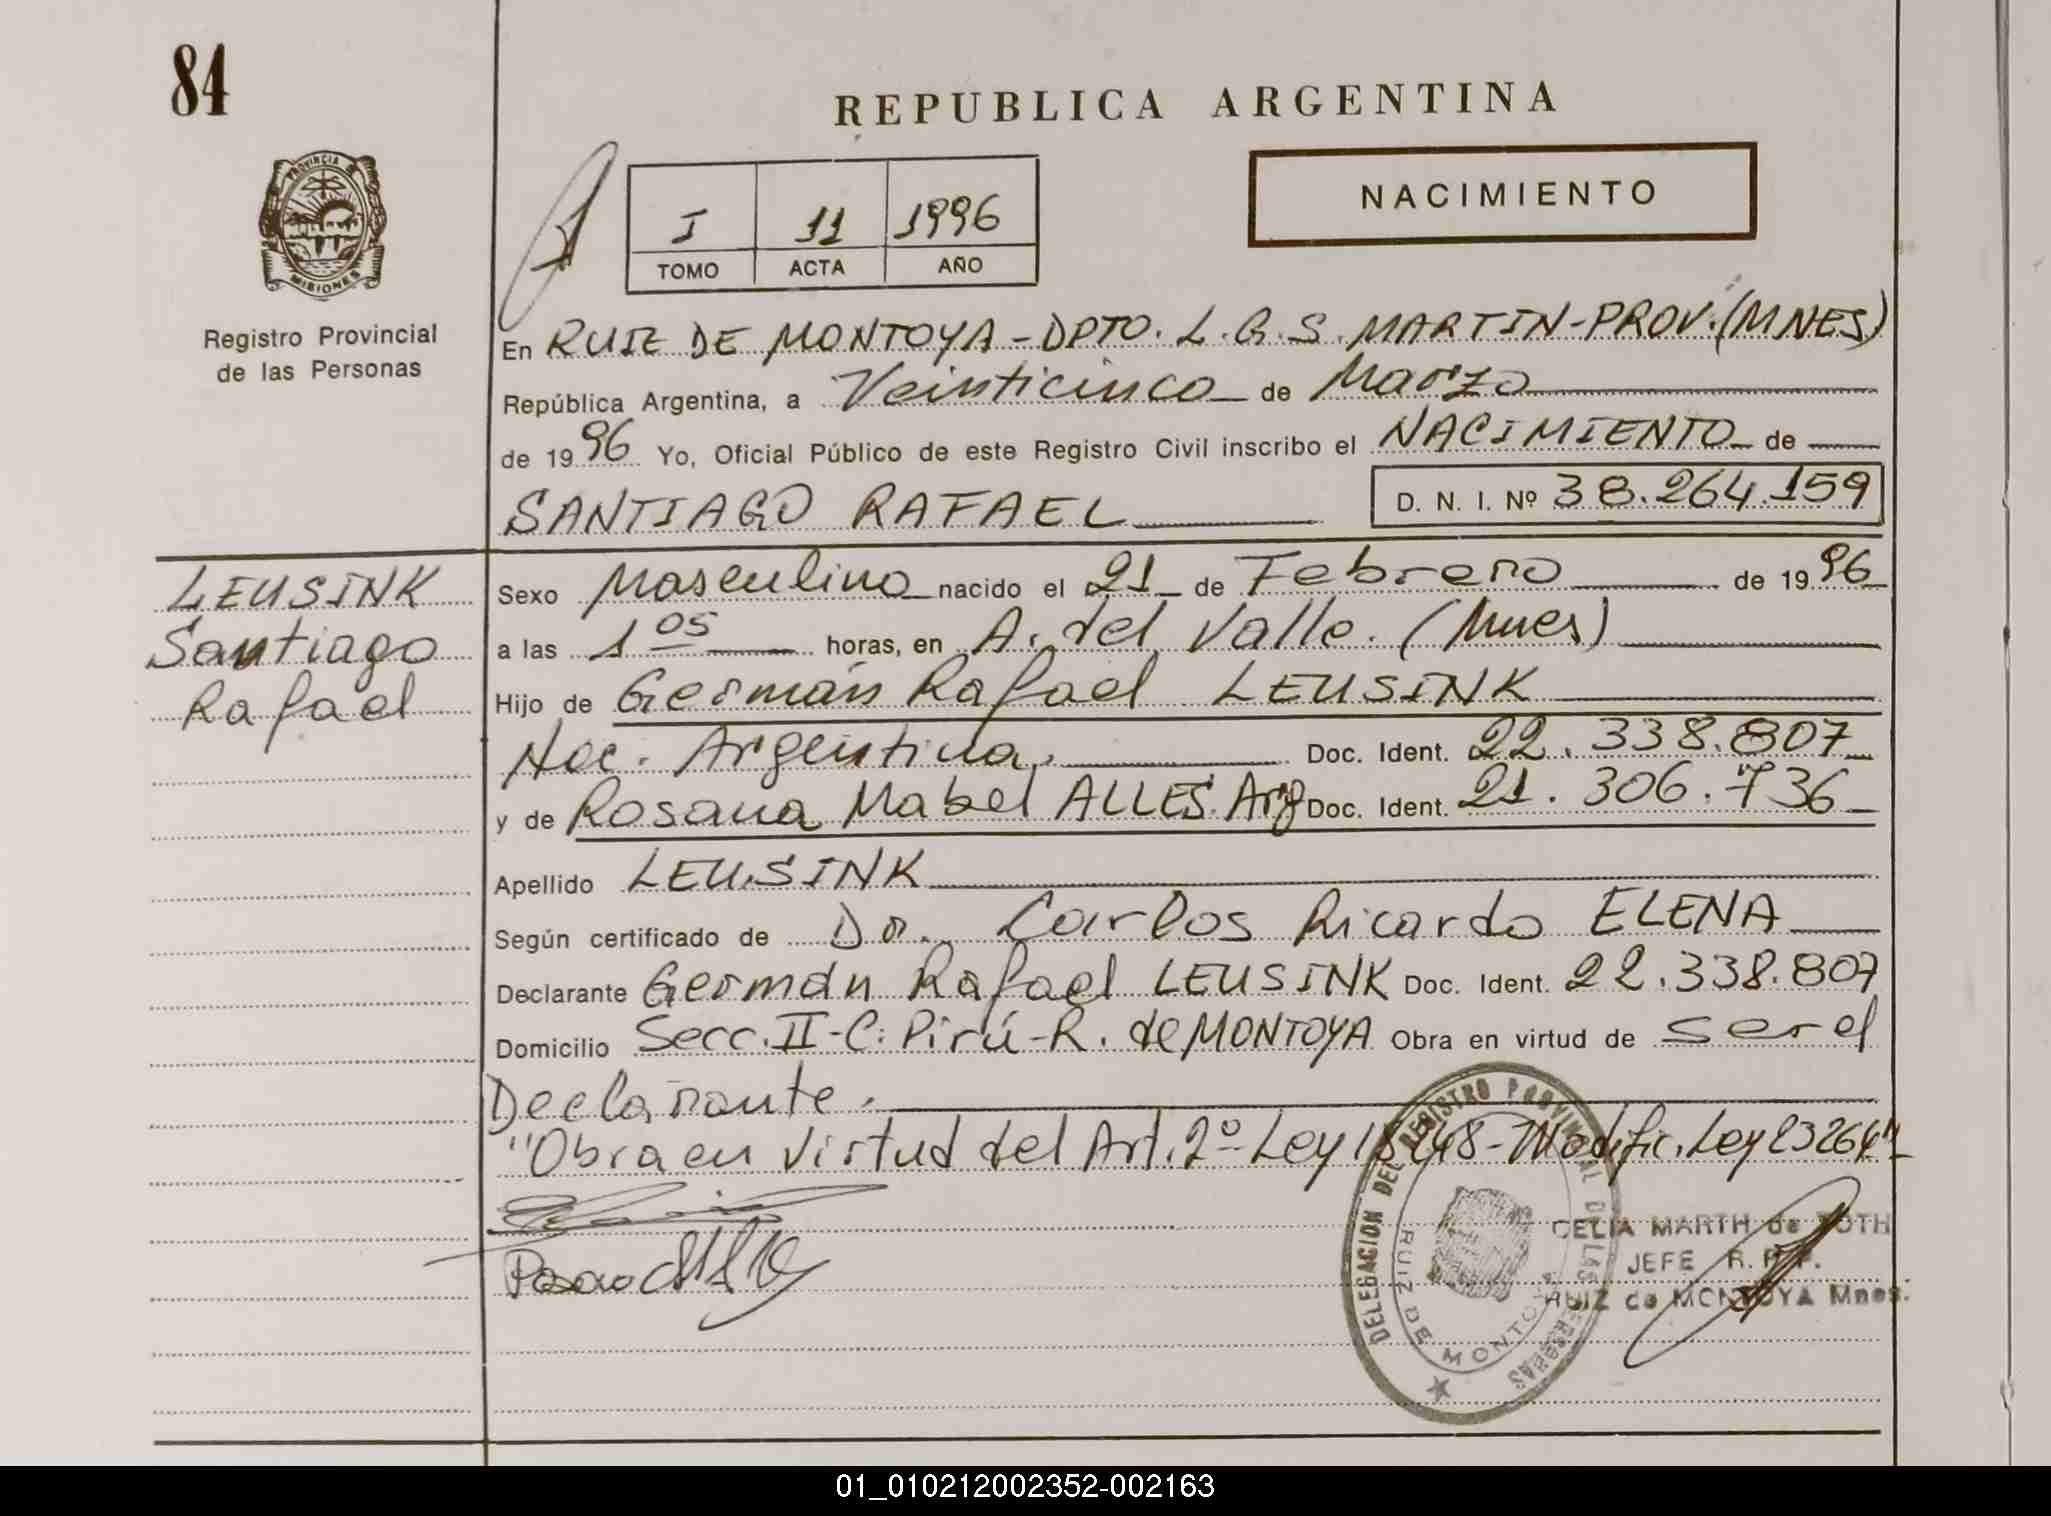 84
REPUBLICA ARGENTINA
PROVINCIA
MISIONES
Registro Provincial
de las Personas
I 11 1996
TOMO ACTA AÑO
NACIMIENTO
En RUIZ DE MONTOYA - DPTO. L. G. S. MARTIN - PROV. (MNES)
República Argentina, a Veinticinco de Marzo
de 1996 Yo, Oficial Público de este Registro Civil inscribo el NACIMIENTO de
SANTIAGO RAFAEL D. N. I. Nº 38.264.159
LEUSINK
Santiago
Rafael
Sexo Masculino nacido el 21 de Febrero de 1996
a las 1 05 horas, en A. del Valle. (Mnes)
Hijo de Germán Rafael LEUSINK
Nac. Argentina. Doc. Ident. 22.338.807
y de Rosana Mabel ALLES. Arg Doc. Ident. 21.306.736
Apellido LEUSINK
Según certificado de Dr. Carlos Ricardo ELENA
Declarante Germán Rafael LEUSINK Doc. Ident. 22.338.807
Domicilio Secc. II - C: Pirú - R. de MONTOYA Obra en virtud de ser el
Declarante.
"Obra en virtud del Art. 2º Ley 18248 - Modific. Ley 23264"
DELEGACION DEL REGISTRO PROVINCIAL DE LAS PERSONAS
RUIZ DE MONTOYA
CELIA MARTH de TOTH
JEFE R. P. P.
RUIZ de MONTOYA Mnes.
01_010212002352-002163